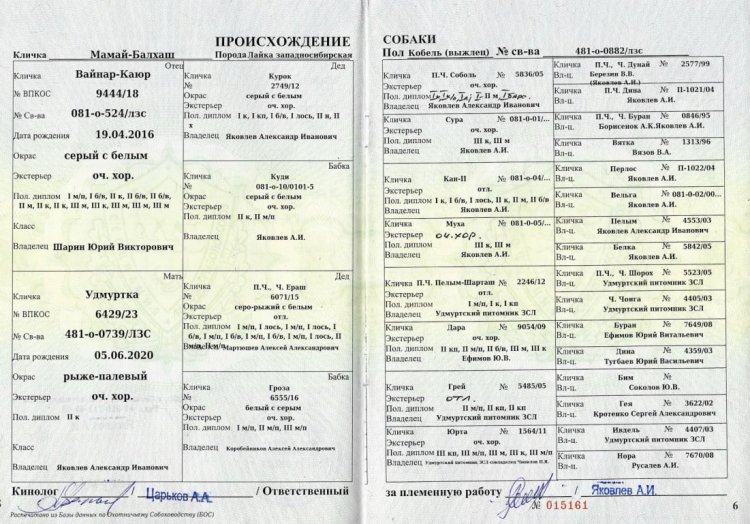 ПРОИСХОЖДЕНИЕ
Кличка Мамай-Балхаш Порода Лайка западносибирская
Отец
Кличка Вайнар-Каюр
№ ВПКОС 9444/18
№ Св-ва 081-о-524/лзс
Дата рождения 19.04.2016
Окрас серый с белым
Экстерьер оч. хор.
Пол. диплом I м/п, I б/в, II к, II б/в, II б/в,
II м, II к, II к, III м, III к, III м, III м, III м
Класс
Владелец Шарин Юрий Викторович
Мать
Кличка Удмуртка
№ ВПКОС 6429/23
№ Св-ва 481-о-0739/ЛЗС
Дата рождения 05.06.2020
Окрас рыже-палевый
Экстерьер оч. хор.
Пол. диплом II к
Класс
Владелец Яковлев Александр Иванович
Дед
Кличка Курок
№ 2749/12
Окрас серый с белым
Экстерьер оч. хор.
Пол. диплом I к, I кп, I б/в, I лось, II н, II
х
Владелец Яковлев Александр Иванович
Бабка
Кличка Куди
№ 081-о-10/0101-5
Окрас серый с белым
Экстерьер оч. хор.
Пол. диплом II к, II м/п
Владелец Яковлев А.И.
Дед
Кличка П.Ч., Ч. Ераш
№ 6071/15
Окрас серо-рыжий с белым
Экстерьер отл.
Пол. диплом I м/п, I лось, I м/п, I лось, I
б/в, I м/п, I б/в, I м/п, I б/в, I м/п, I лось, II
м/п, II м/п
Владелец Мартюшев Алексей Александрович
Бабка
Кличка Гроза
№ 6555/16
Окрас белый с серым
Экстерьер оч. хор.
Пол. диплом I м/п, II м/п, III м/п
Владелец Коробейников Алексей Александрович
Кинолог / Царьков А.А. / Ответственный
Распечатано из Базы данных по Охотничьему Собаководству (БОС)
СОБАКИ
Пол Кобель (выжлец) № св-ва 481-о-0882/лзс
Кличка П.Ч. Соболь № 5836/05
Экстерьер оч. хор.
Пол. диплом
Владелец Яковлев Александр Иванович
Кличка Сура № 081-0-01/...
Экстерьер оч. хор.
Пол. диплом III к, III м
Владелец Яковлев А.И.
Кличка Кан-II № 081-о-04/...
Экстерьер отл.
Пол. диплом I к, I б/в, I лось, II к, II м, II б/в
Владелец Яковлев А.И.
Кличка Муха № 081-0-05/...
Экстерьер оч.хор.
Пол. диплом III к, III м
Владелец Яковлев А.И.
Кличка П.Ч. Пелым-Шарташ № 2246/12
Экстерьер отл.
Пол. диплом I м/п, I к, I кп
Владелец Удмуртский питомник ЗСЛ
Кличка Дара № 9054/09
Экстерьер оч. хор.
Пол. диплом II кп, II м/п, II б/в, III м, III к
Владелец Ефимов Ю.В.
Кличка Грей № 5485/05
Экстерьер отл.
Пол. диплом II м/п, II кп, II кп
Владелец Удмуртский питомник ЗСЛ
Кличка Юрта № 1564/11
Экстерьер оч. хор.
Пол. диплом III кп, III м/п, III м, III к, III м/п
Владелец Удмуртский питомник ЗСЛ
Кличка П.Ч., Ч. Дунай № 2577/99
Вл-ц. Березин В.В.
(Яковлев А.И.)
Кличка П.Ч. Дина № П-1021/04
Вл-ц. Яковлев А.И.
Кличка П.Ч., Ч Буран № 0846/95
Вл-ц. Борисенок А.К.Яковлев А.И.
Кличка Вятка № 1313/96
Вл-ц. Вязов В.А.
Кличка Перлос № П-1022/04
Вл-ц. Яковлев А.И.
Кличка Вельга № 081-0-02/00...
Вл-ц. Яковлев А.И.
Кличка Пелым № 4553/03
Вл-ц. Яковлев Александр Иванович
Кличка Белка № 5842/05
Вл-ц. Яковлев А.И.
Кличка П.Ч., Ч. Шорох № 5523/05
Вл-ц. Удмуртский питомник ЗСЛ
Кличка Ч. Чонга № 4405/03
Вл-ц. Удмуртский питомник ЗСЛ
Кличка Буран № 7649/08
Вл-ц. Ефимов Юрий Витальевич
Кличка Дина № 4359/03
Вл-ц. Тугбаев Юрий Васильевич
Кличка Бим №
Вл-ц. Соколов Ю.В.
Кличка Гея № 3622/02
Вл-ц. Кротенко Сергей Александрович
Кличка Ивдель № 4407/03
Вл-ц. Удмуртский питомник ЗСЛ
Кличка Нора № 7670/08
Вл-ц. Русалев А.И.
за племенную работу / Яковлев А.И.
№ 015161
6